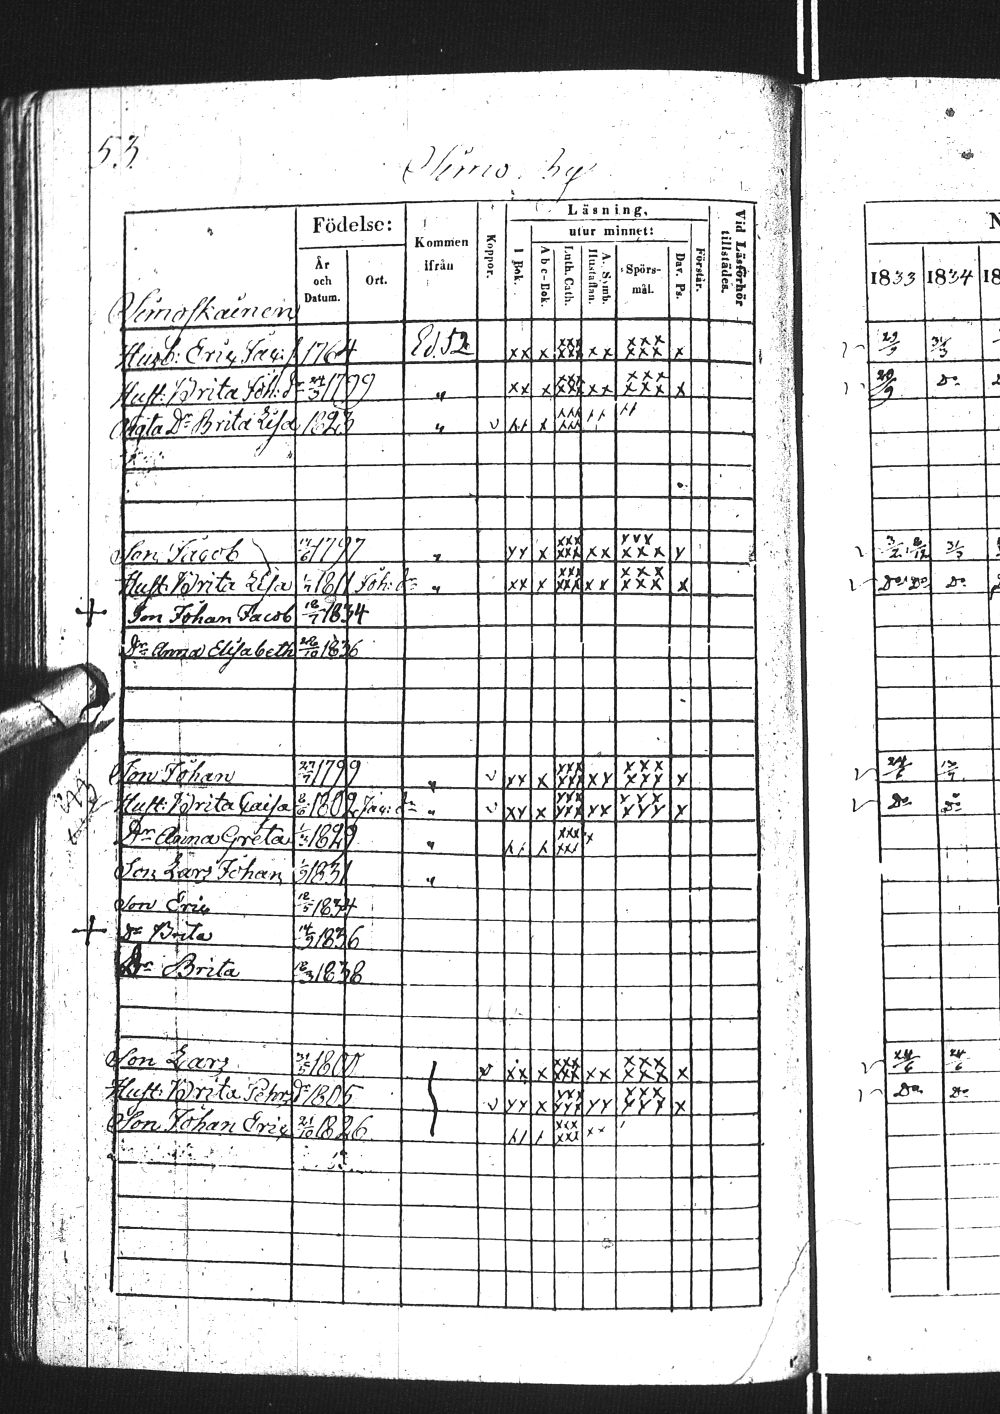 53
Simo by
Födelse:
Kommen ifrån
Koppor.
Läsning,
utur minnet:
I Bok.
Abc-Bok.
Luth. Cath.
Hustaflan.
A. Symb.
Spörs-mål.
Dav. Ps.
Förstår.
Vid Läsförhör tillstädes.
År och Datum.
Ort.
1833 1834
Simoskainen
Husb: Eric Jac: s. 1764 Ed. 52 xx x xxx xxx xx xxx xxx x 3/3
Hust: Brita Joh: dr 24/3 1799 " xx x xxx xxx xx xxx xxx x Do
Dr Brita Lisa 1823 " v
Son Jacob 1797 "
Hust: Brita Lisa 1811 Joh: dr " xx x xxx xxx xx xxx xxx x Do Do Do
+ Son Johan Jacob 18/7 1834
Dr Anna Elisabeth 28/10 1836
Son Johan 27/7 1799 " v 24/6
Hust: Brita Caisa 8/6 1802 Jac: dr " v Do Do
Dr Anna Greta 1829 "
Son Lars Johan 1831 "
Son Eric 18/5 1834
+ Dr Brita 14/3 1836
Dr Brita 18/3 1838
Son Lars 31/5 1800 v xx x xxx xxx xx xxx xxx x 24/6 24/6
Hust: Brita Pehrs dr 1805 v Do Do
Son Johan Eric 21/10 1826